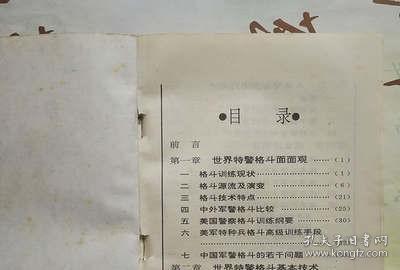 ●目 录●
前 言
第一章 世界特警格斗面面观……(1)
一 格斗训练现状……(1)
二 格斗源流及演变……(6)
三 格斗技术特点……(21)
四 中外军警格斗比较……(25)
五 美国警察格斗训练纲要……(30)
六 美军特种兵格斗高级训练手段
七 中国军警格斗的若干问题
第二章 世界特警格斗基本技术
孔夫子旧书网